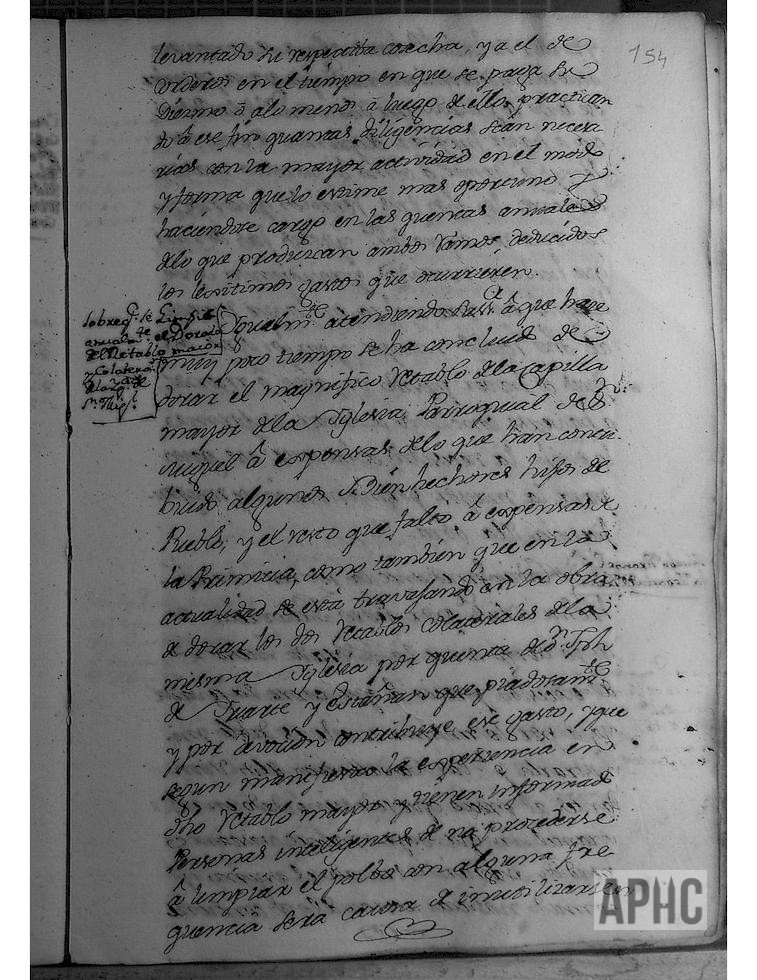 154
levantado su respectiba cosecha, y a el de
corderos en el tiempo en que se paga su
Diezmo ô alo menos â luego de ellos practican
do â ese fin quantas diligencias sean necesa
rias con la mayor actividad en el modo
y forma que lo estime mas oportuno y
haciendose cargo en las quentas anuales
delo que produzcan ambos Ramos deducidos
los lexitimos gastos que ocurrieren.
sobre q.e se Limpie
anualm.te el Dorado
del Retablo maior
y Colateral
dela Yg.a de
S.n Mig.l
Ygualm.te atendiendo â que hace
muy poco tiempo se ha concluido de
dorar el magnifico Retablo dela Capilla
mayor dela Yglesia Parroquial de S.n
Miguel â expensas delo que han contri
buido algunos Bienhechores hijos de
Pueblo, y el resto que faltó â expensas de
la Primicia, como tambien que en la
actualidad se está travajando en la obra
de dorar los dos Retablos colaterales dela
misma Yglesia por quenta de D.n Jph
de Yriarte y Estañan que piadosam.te
y por devocion contribuye ese gasto, y que
segun manifiesta la experiencia en
dho Retablo mayor y tienen informado
Personas inteligentes de no procederse
â limpiar el polbo con alguna fre
quencia seria causa de inutilizarse
APHC